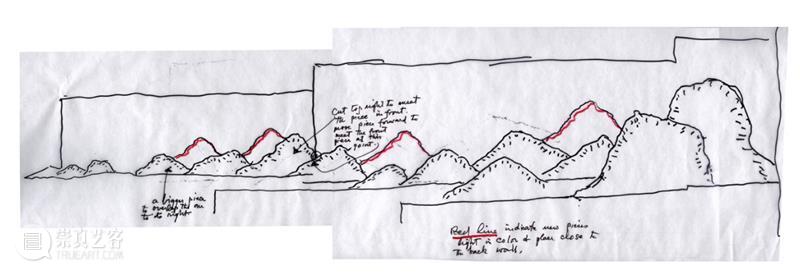 Cut top right to meet
the piece in front.
move piece forward to
meet the front
piece at this
point.
a bigger piece
to overlap the one
to its right
Red line indicate new pieces
light in color & place close to
the back walls.
崇真艺客
TRUEART.COM